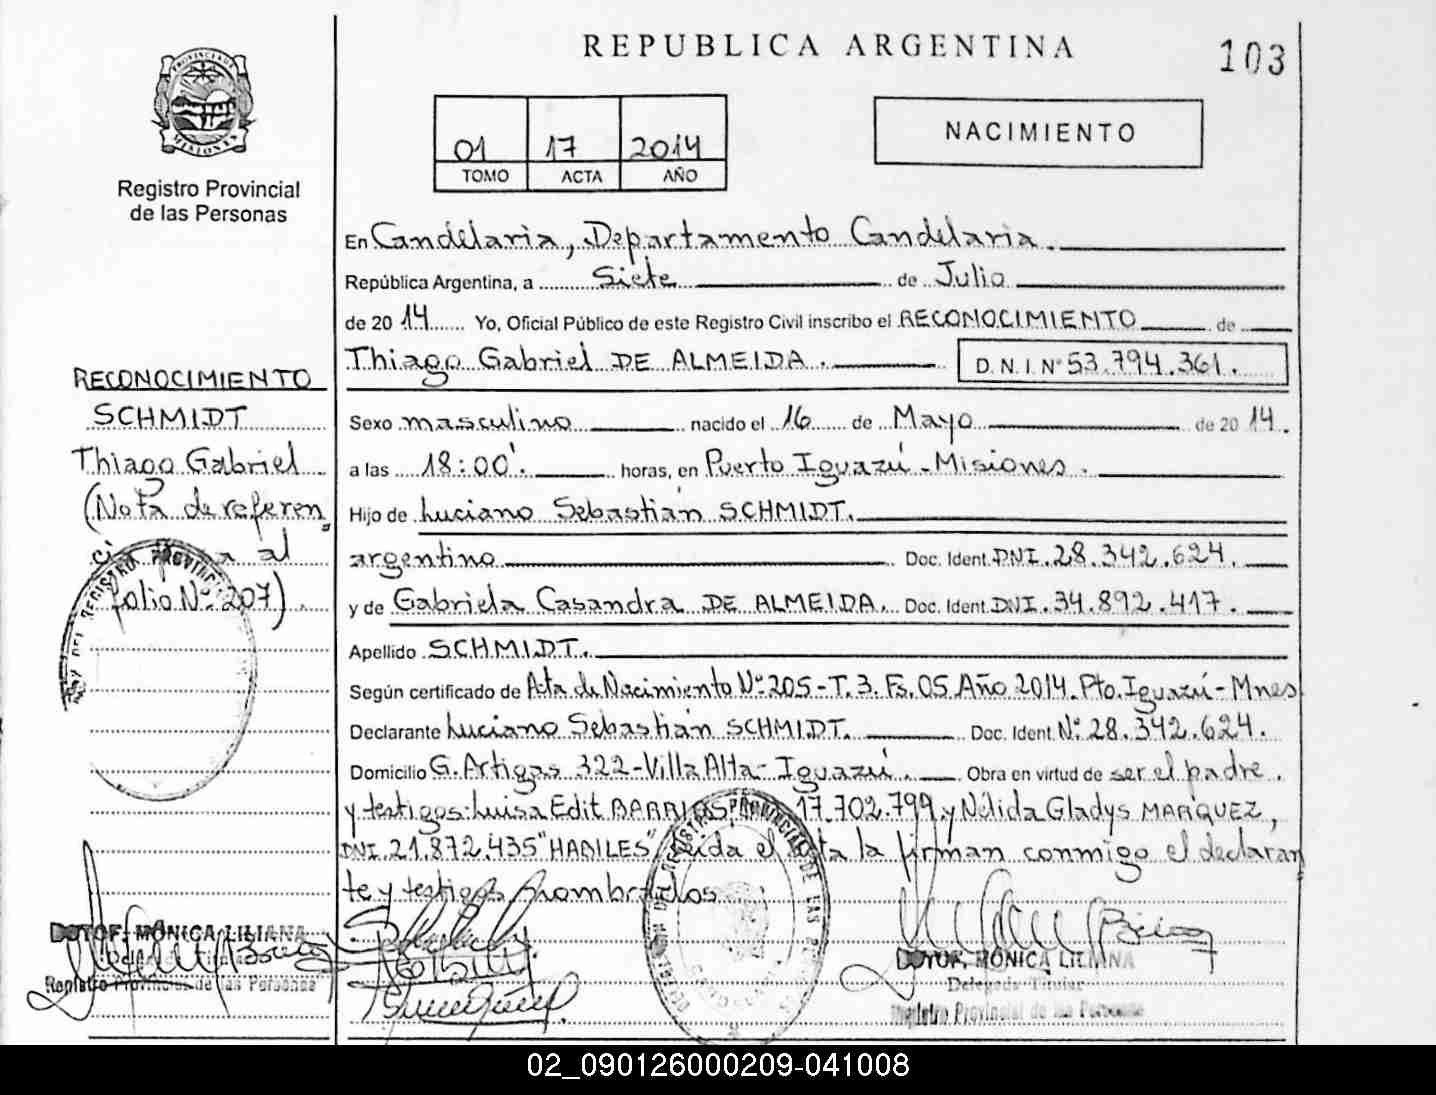 REPUBLICA ARGENTINA
103
PROVINCIA DE
MISIONES
Registro Provincial
de las Personas
01 17 2014
TOMO ACTA AÑO
NACIMIENTO
En Candelaria, Departamento Candelaria.
República Argentina, a Siete de Julio
de 2014 Yo, Oficial Público de este Registro Civil inscribo el RECONOCIMIENTO de
Thiago Gabriel DE ALMEIDA. D.N.I. Nº 53.794.361.
Sexo masculino nacido el 16 de Mayo de 2014.
a las 18:00'. horas, en Puerto Iguazú - Misiones.
Hijo de Luciano Sebastián SCHMIDT.
argentino Doc. Ident. DNI. 28.342.624.
y de Gabriela Casandra DE ALMEIDA. Doc. Ident. DNI. 34.892.417.
Apellido SCHMIDT.
Según certificado de Acta de Nacimiento Nº 205 - T. 3. Fs. 05 Año 2014. Pto. Iguazú - Mnes
Declarante Luciano Sebastián SCHMIDT. Doc. Ident. Nº 28.342.624.
Domicilio G. Artigas 322 - Villa Alta - Iguazú. Obra en virtud de ser el padre.
y testigos: Luisa Edit BARRIOS, 17.702.799 y Nélida Gladys MARQUEZ,
DNI. 21.872.435 "HABILES" Leida el acta la firman conmigo el declaran
te y testigos nombrados.
RECONOCIMIENTO
SCHMIDT
Thiago Gabriel
(Nota de referen
cia al
folio Nº 207).
MÓNICA LILIANA
Registro Provincial de las Personas
MÓNICA LILIANA
Delegada Titular
Registro Provincial de las Personas
02_090126000209-041008